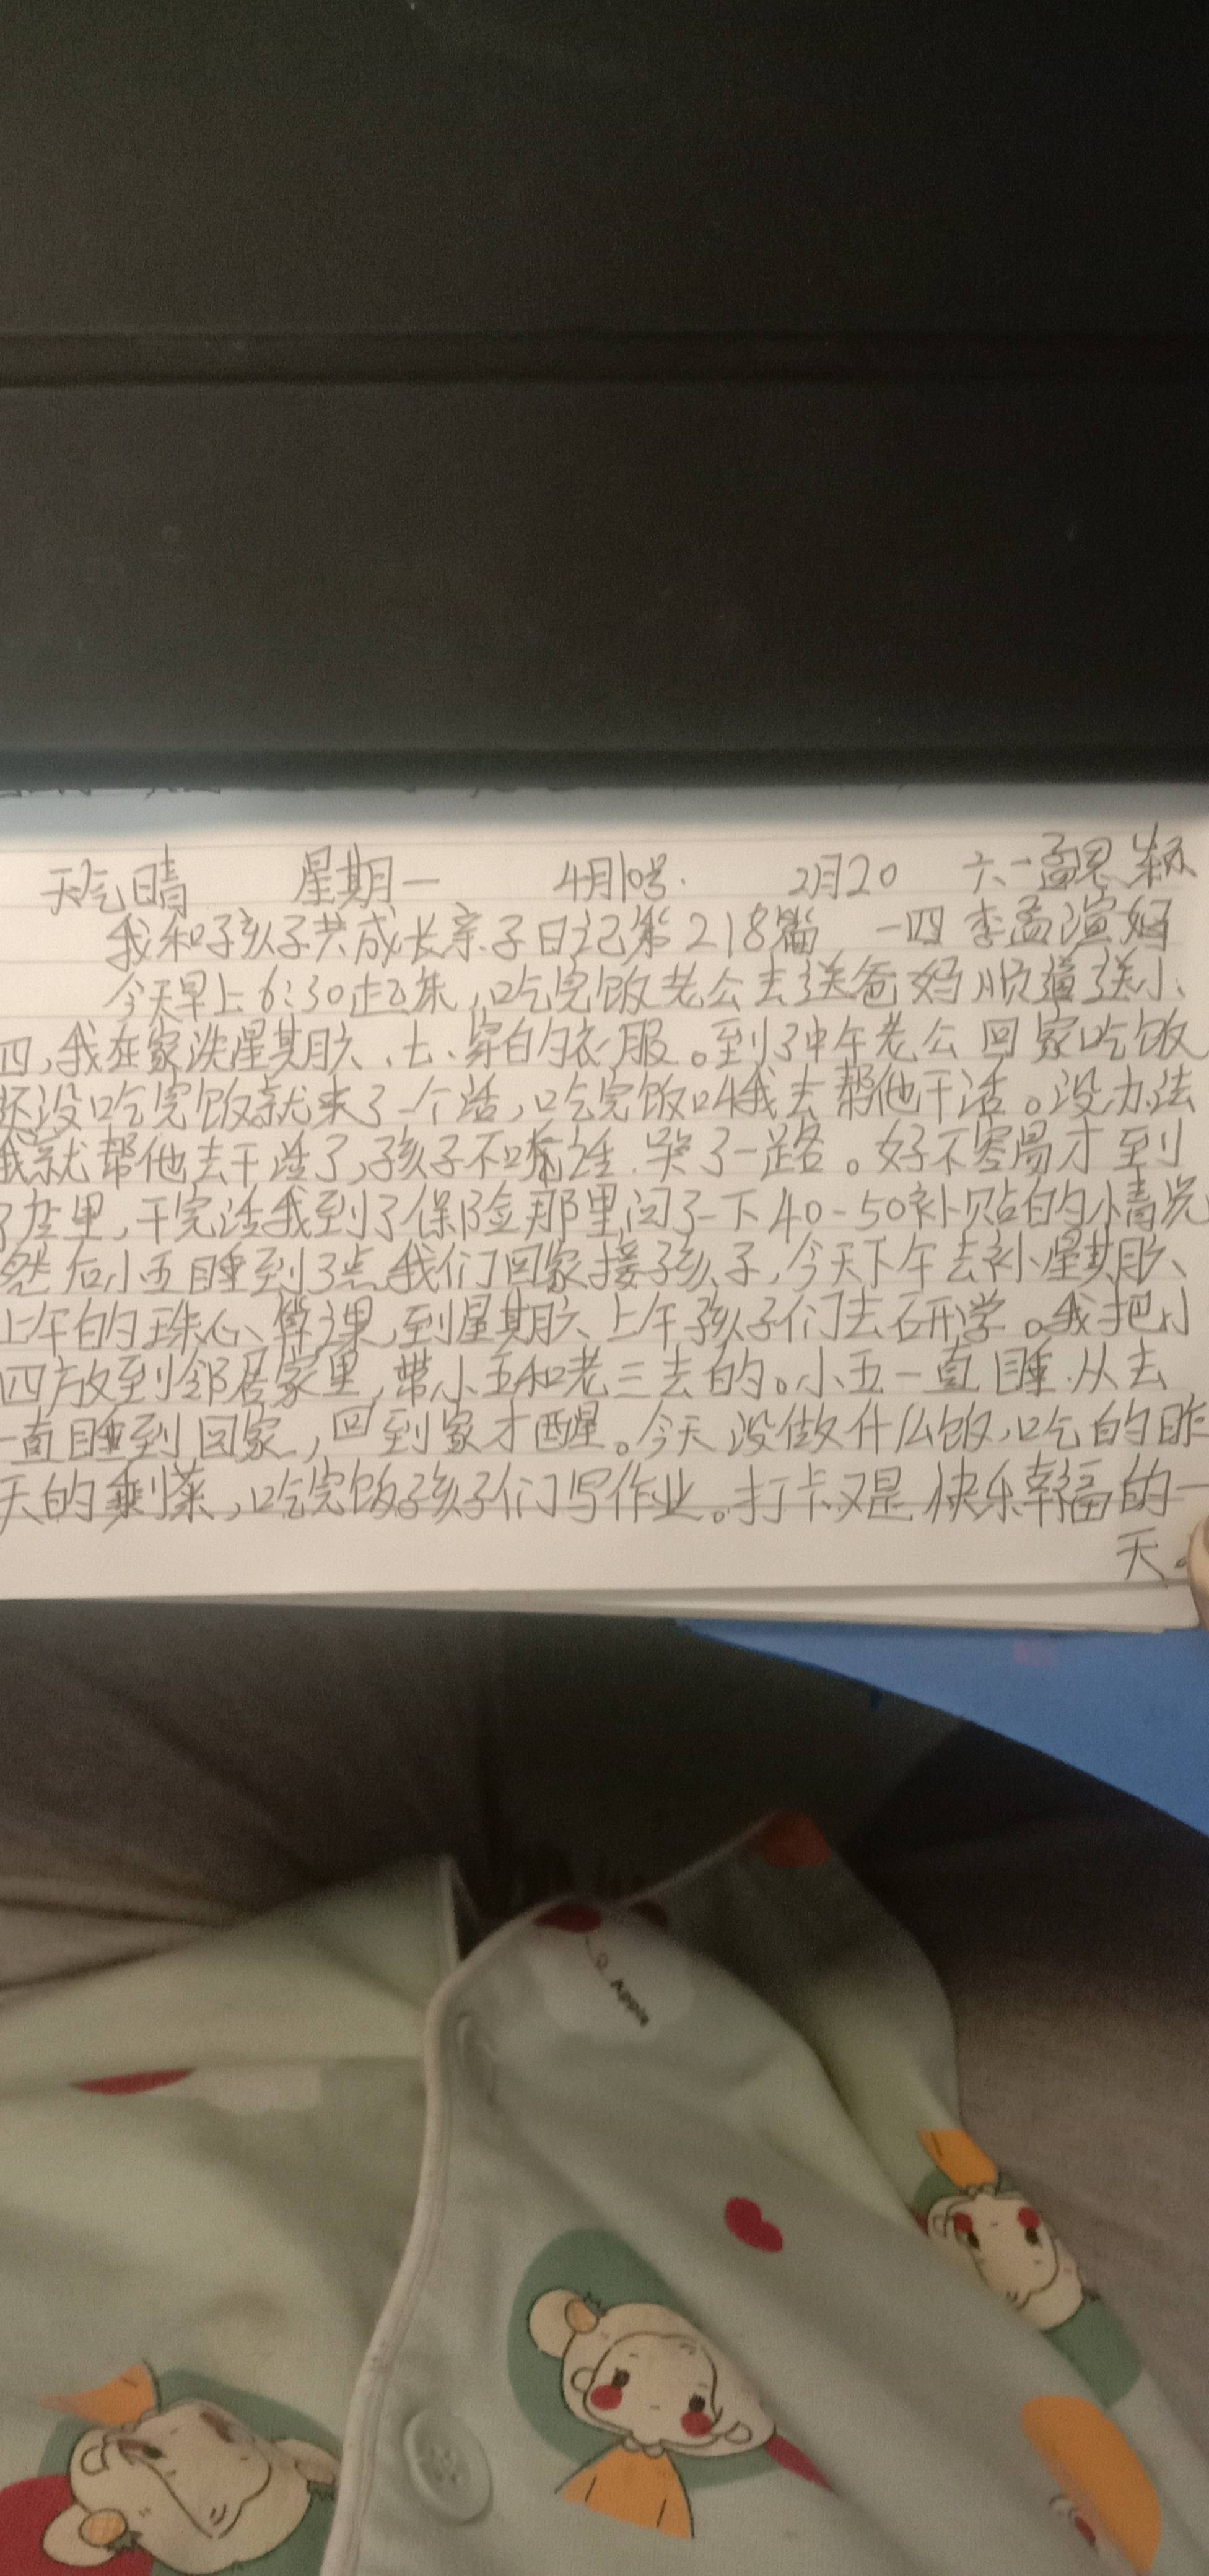 天气晴 星期一 4月10号. 2月20 六一孟思
我和孩子共成长亲子日记第218篇 一四李孟瑄妈
今天早上6:30起床,吃完饭老公去送爸妈顺道送小
四,我在家洗星期六、七、穿的衣服。到了中午老公回家吃饭
还没吃完饭就来了个活,吃完饭叫我去帮他干活。没办法
我就帮他去干活了,孩子不 哭了一路。好不容易才到
了店里,干完活我到了保险那里问了一下40-50补贴的情况
然后小五睡到3点我们回家接孩子,今天下午去补星期六
上午的珠心算课,到星期六上午孩子们去研学。我把小
四放到邻居家里,带小五和老三去的。小五一直睡.从去
一直睡到回家,回到家才醒。今天没做什么饭,吃的昨
天的剩菜,吃完饭孩子们写作业。打卡又是快乐幸福的一
天。
Apple